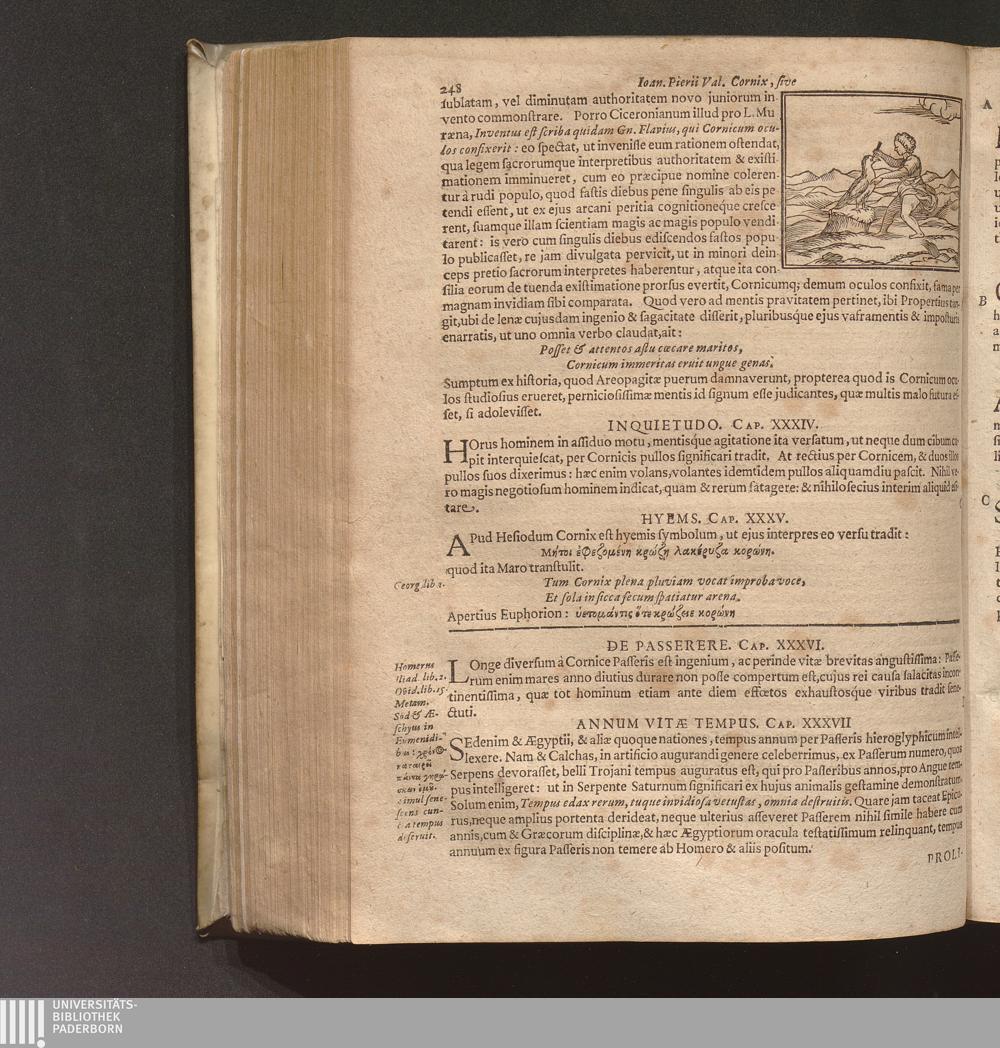 248
Ioan. Pierii Val. Cornix, sive
sublatam, vel diminutam authoritatem novo juniorum in-
vento commonstrare. Porro Ciceronianum illud pro L. Mu
ræna, Inventus est scriba quidam Gn. Flavius, qui Cornicum ocu-
los confixerit: eo spectat, ut invenisse eum rationem ostendat,
qua legem sacrorumque interpretibus authoritatem & existi-
mationem imminueret, cum eo præcipue nomine coleren-
tur à rudi populo, quod fastis diebus pene singulis ab eis pe
tendi essent, ut ex ejus arcani peritia cognitioneque cresce
rent, suamque illam scientiam magis ac magis populo vendi
tarent: is vero cum singulis diebus ediscendos fastos popu-
lo publicasset, re jam divulgata pervicit, ut in minori dein
ceps pretio sacrorum interpretes haberentur, atque ita con-
silia eorum de tuenda existimatione prorsus evertit, Cornicumq; demum oculos confixit, fama per
magnam invidiam sibi comparata. Quod vero ad mentis pravitatem pertinet, ibi Propertius tan-
git, ubi de lenæ cujusdam ingenio & sagacitate disserit, pluribusque ejus vaframentis & imposturis
enarratis, ut uno omnia verbo claudat, ait:
Posset & attentos astu cœcare maritos,
Cornicum immeritas eruit ungue genas.
Sumptum ex historia, quod Areopagitæ puerum damnaverunt, propterea quod is Cornicum ocu-
los studiosius erueret, perniciosissimæ mentis id signum esse judicantes, quæ multis malo futura es-
set, si adolevisset.
INQUIETUDO. CAP. XXXIV.
HOrus hominem in assiduo motu, mentisque agitatione ita versatum, ut neque dum cibum ca-
pit interquiescat, per Cornicis pullos significari tradit. At rectius per Cornicem, & duos illos
pullos suos dixerimus: hæc enim volans, volantes identidem pullos aliquamdiu pascit. Nihil ve-
ro magis negotiosum hominem indicat, quam & rerum satagere: & nihilo secius interim aliquid esi-
tare.
HYEMS. CAP. XXXV.
APud Hesiodum Cornix est hyemis symbolum, ut ejus interpres eo versu tradit:
Μήτοι ἐφεζομένη κρώζη λακέρυζα κορώνη.
quod ita Maro transtulit.
Georg. lib. 1.
Tum Cornix plena pluviam vocat improba voce,
Et sola in sicca secum spatiatur arena.
Apertius Euphorion: ὑετομάντις ὅτε κρώζειε κορώνη
DE PASSERERE. CAP. XXXVI.
LOnge diversum à Cornice Passeris est ingenium, ac perinde vitæ brevitas angustissima: Passe-
rum enim mares anno diutius durare non posse compertum est, cujus rei causa salacitas incon-
tinentissima, quæ tot hominum etiam ante diem effœtos exhaustosque viribus tradit sene-
ctuti.
ANNUM VITÆ TEMPUS. CAP. XXXVII
SEdenim & Ægyptii, & aliæ quoque nationes, tempus annum per Passeris hieroglyphicum intel-
lexere. Nam & Calchas, in artificio augurandi genere celeberrimus, ex Passerum numero, quos
Serpens devorasset, belli Trojani tempus auguratus est, qui pro Passeribus annos, pro Angue tem-
pus intelligeret: ut in Serpente Saturnum significari ex hujus animalis gestamine demonstratum.
Solum enim, Tempus edax rerum, tuque invidiosa vetustas, omnia destruitis. Quare jam taceat Epicu-
rus, neque amplius portenta derideat, neque ulterius asseveret Passerem nihil simile habere cum
annis, cum & Græcorum disciplinæ, & hæc Ægyptiorum oracula testatissimum relinquant, tempus
annuum ex figura Passeris non temere ab Homero & aliis positum.
PROLI-
Homerus
Iliad. lib. 2.
Ovid. lib. 15.
Metam.
Sed & Æ-
schyus in
Eumenidi-
bus:
simul sene-
scens cun-
cta tempus
destruit.
A
B
C
UNIVERSITÄTS-
BIBLIOTHEK
PADERBORN